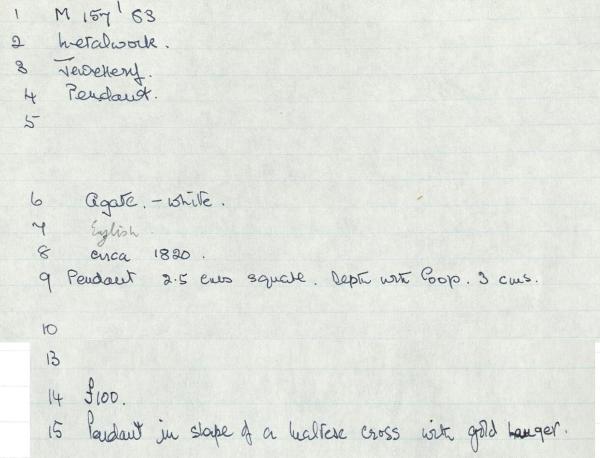 1 M 157' 63
2 Metalwork.
3 Jewellery.
4 Pendant.
5
6 Agate. - white.
7 English
8 circa 1820.
9 Pendant 2.5 cms square. Depth with loop. 3 cms.
10
13
14 £100.
15 Pendant in shape of a maltese cross with gold hanger.